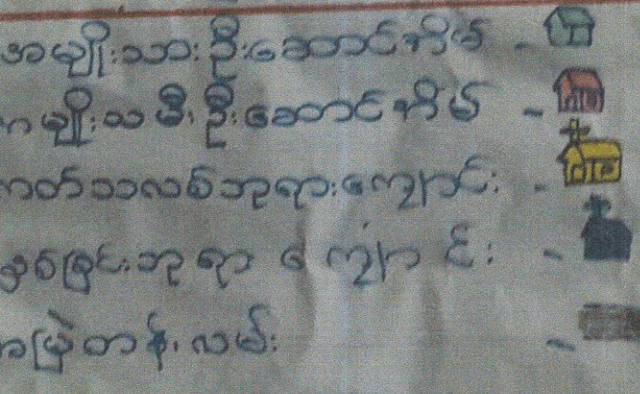 အမျိုးသားဦးဆောင်အိမ် -
အမျိုးသမီးဦးဆောင်အိမ် -
ကတ်သလစ်ဘုရားကျောင်း -
နှစ်ခြင်းဘုရားကျောင်း -
အမြဲတန်းလမ်း -